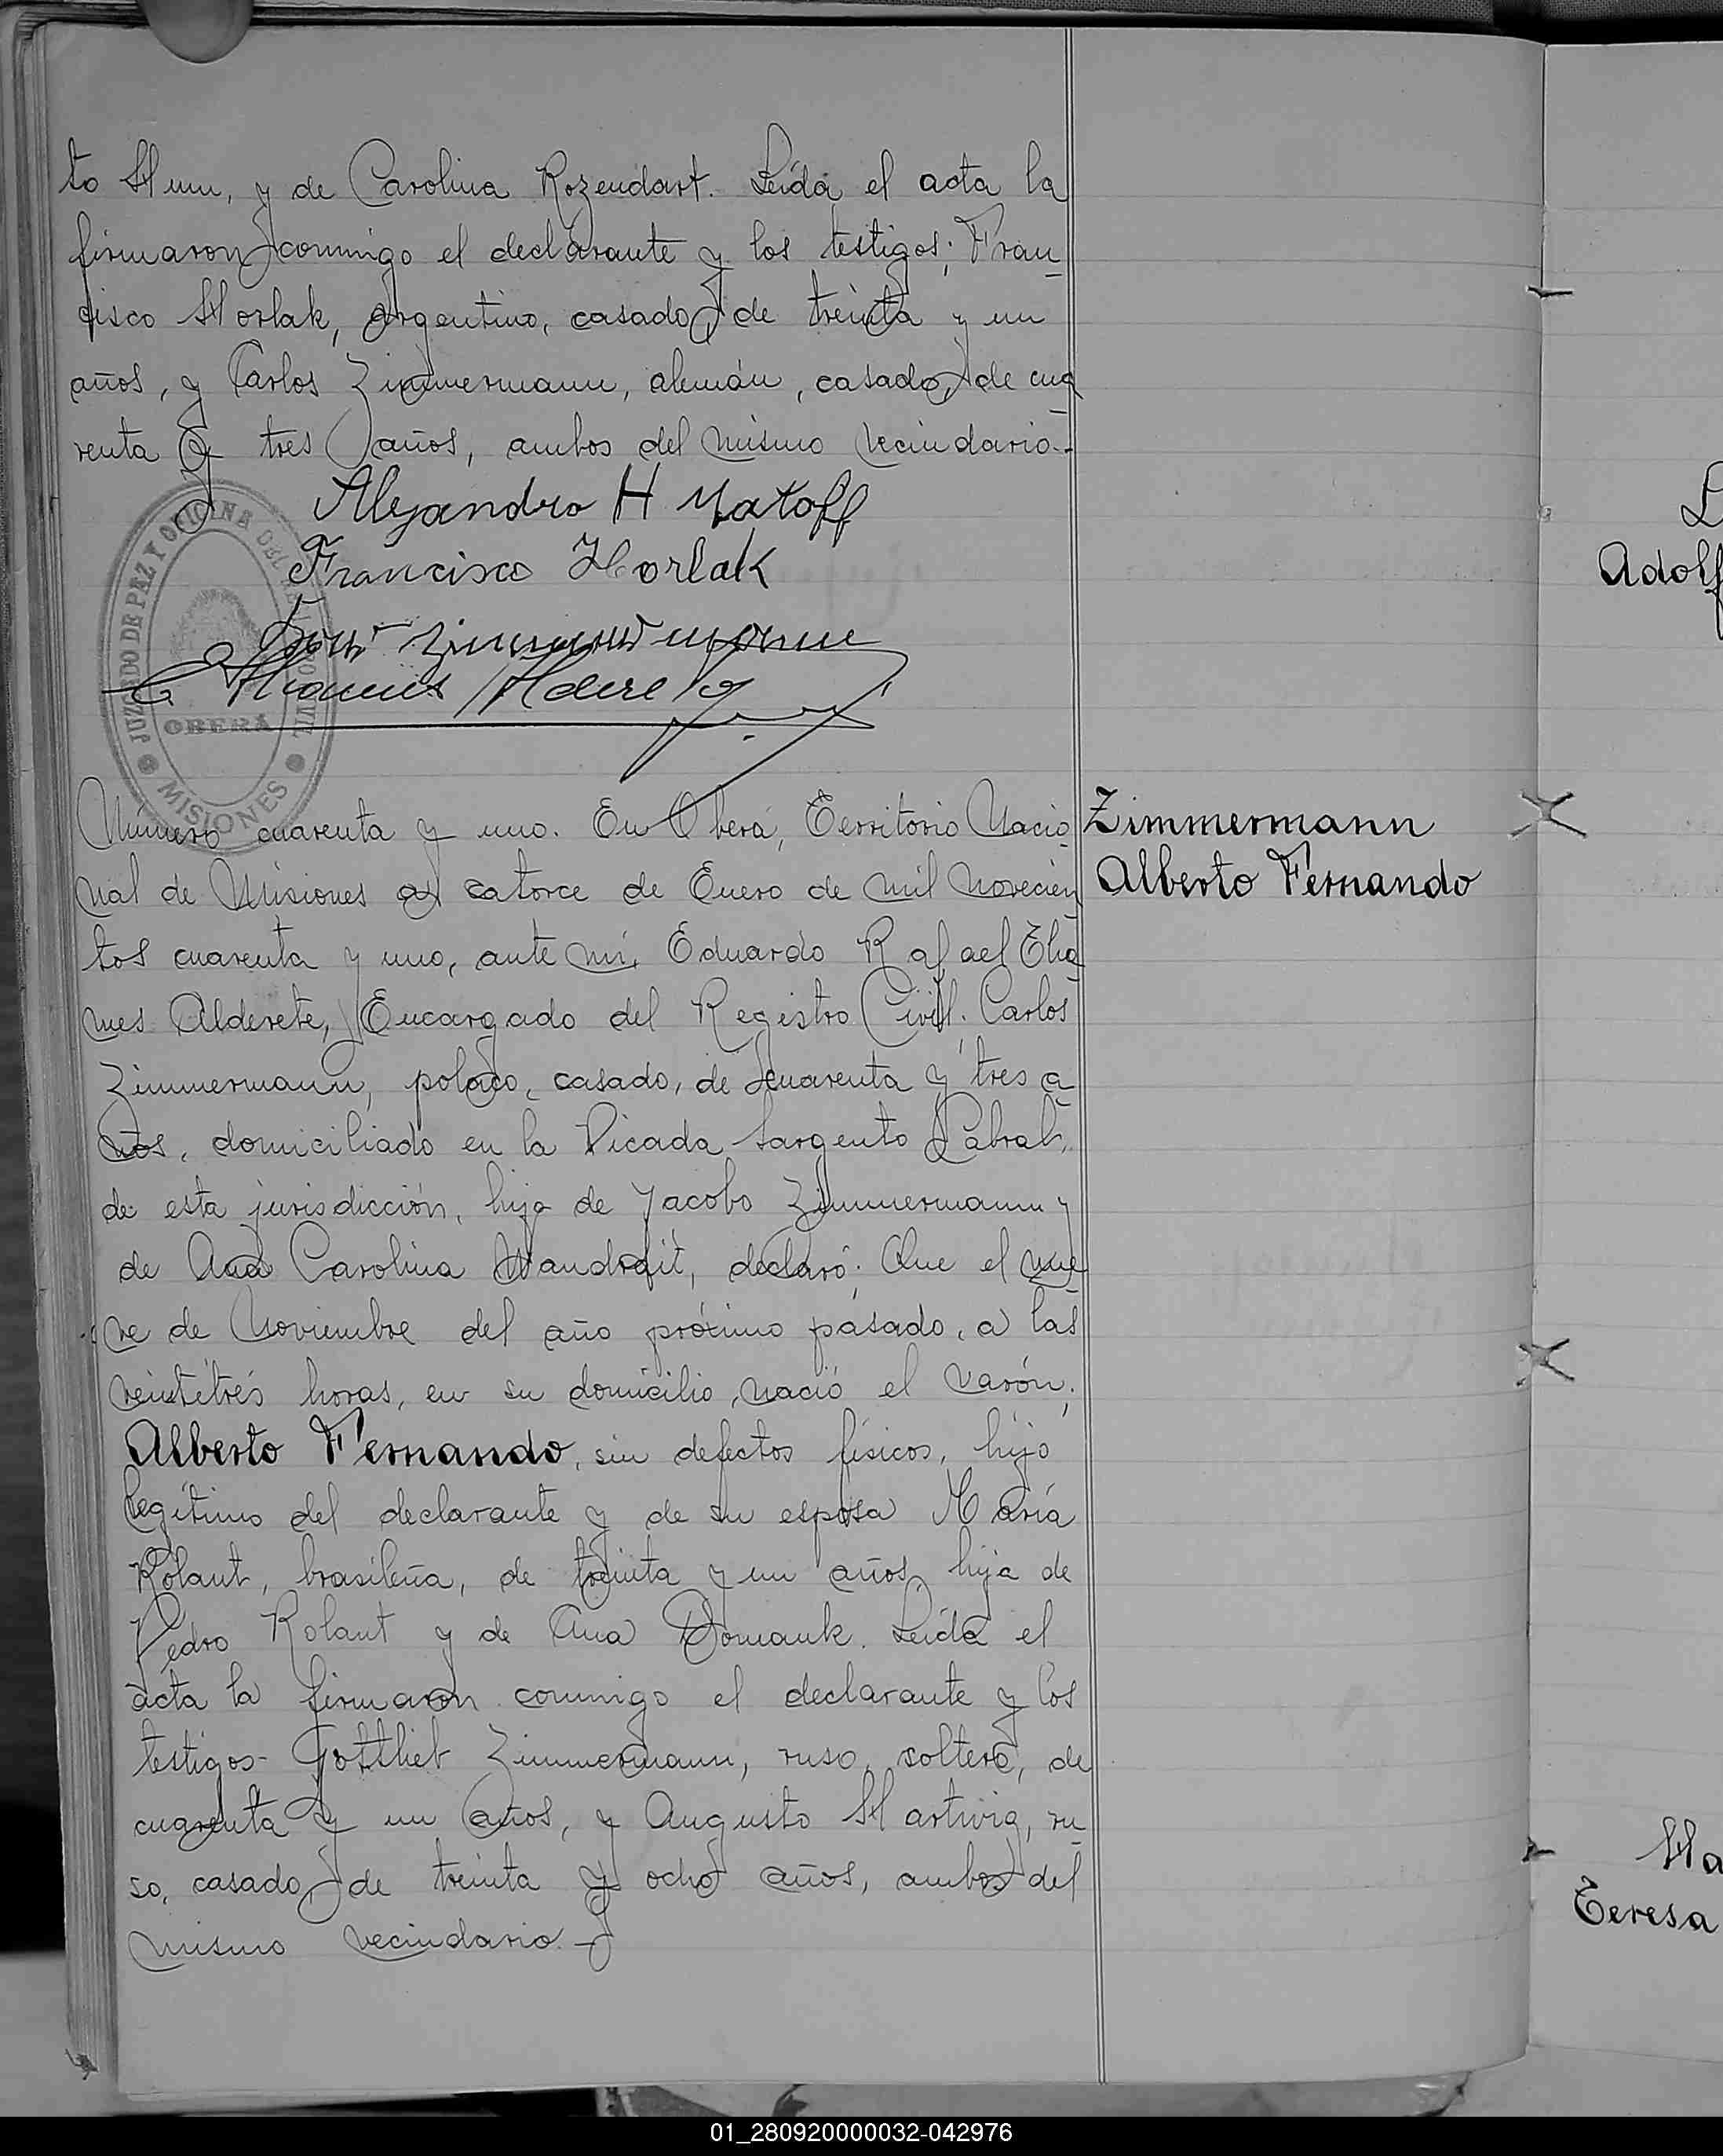 to Hum, y de Carolina Rozendart. Leída el acta la
firmaron conmigo el declarante y los testigos: Fran
cisco Horlak, argentino, casado, de treinta y un
años, y Carlos Zimmermann, alemán, casado, de cua
renta y tres años, ambos del mismo vecindario.-
Alejandro H Matoff
Francisco Horlak
JUZGADO DE PEZ Y OFICINA DEL REGISTRO CIVIL
OBERÁ
MISIONES
Número cuarenta y uno. En Oberá, Territorio Nacio
nal de Misiones a catorce de Enero de mil novecien
tos cuarenta y uno, ante mí, Eduardo Rafael Tha
mes Alderete, Encargado del Registro Civil. Carlos
Zimmermann, polaco, casado, de cuarenta y tres a
ños, domiciliado en la Picada Sargento Cabral,
de esta jurisdicción, hijo de Jacobo Zimmermann y
de Ana Carolina Wandrait, declaró: Que el nue
ve de Noviembre del año próximo pasado, a las
veintitrés horas, en su domicilio, nació el varón:
Alberto Fernando, sin defectos físicos, hijo
legítimo del declarante y de su esposa María
Rolant, brasileña, de treinta y un años, hija de
Pedro Rolant y de Ana Domank. Leída el
acta la firmaron conmigo el declarante y los
testigos- Gottlieb Zimmermann, ruso, soltero, de
cuarenta y un años, y Augusto Hartwig, ru
so, casado, de treinta y ocho años, ambos del
mismo vecindario.-
Zimmermann
Alberto Fernando
Adolf
Ha
Teresa
01_280920000032-042976